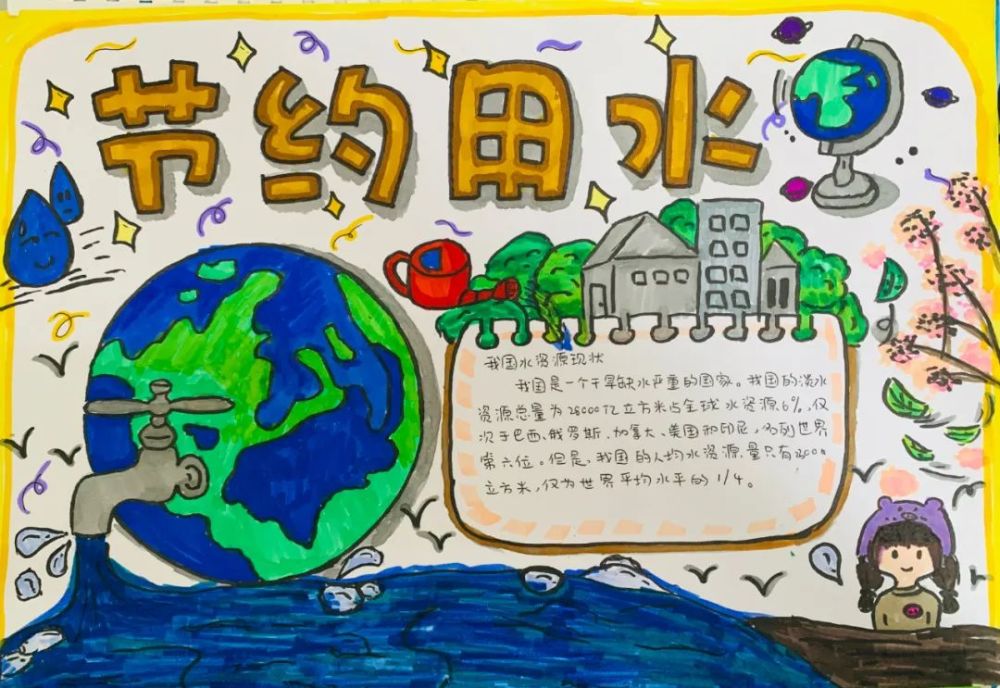 节约用水
我国水资源现状
我国是一个干旱缺水严重的国家。我国的淡水
资源总量为28000亿立方米占全球水资源6%,仅
次于巴西、俄罗斯、加拿大、美国和印尼,名列世界
第六位。但是,我国的人均水资源量只有2300
立方米,仅为世界平均水平的1/4。